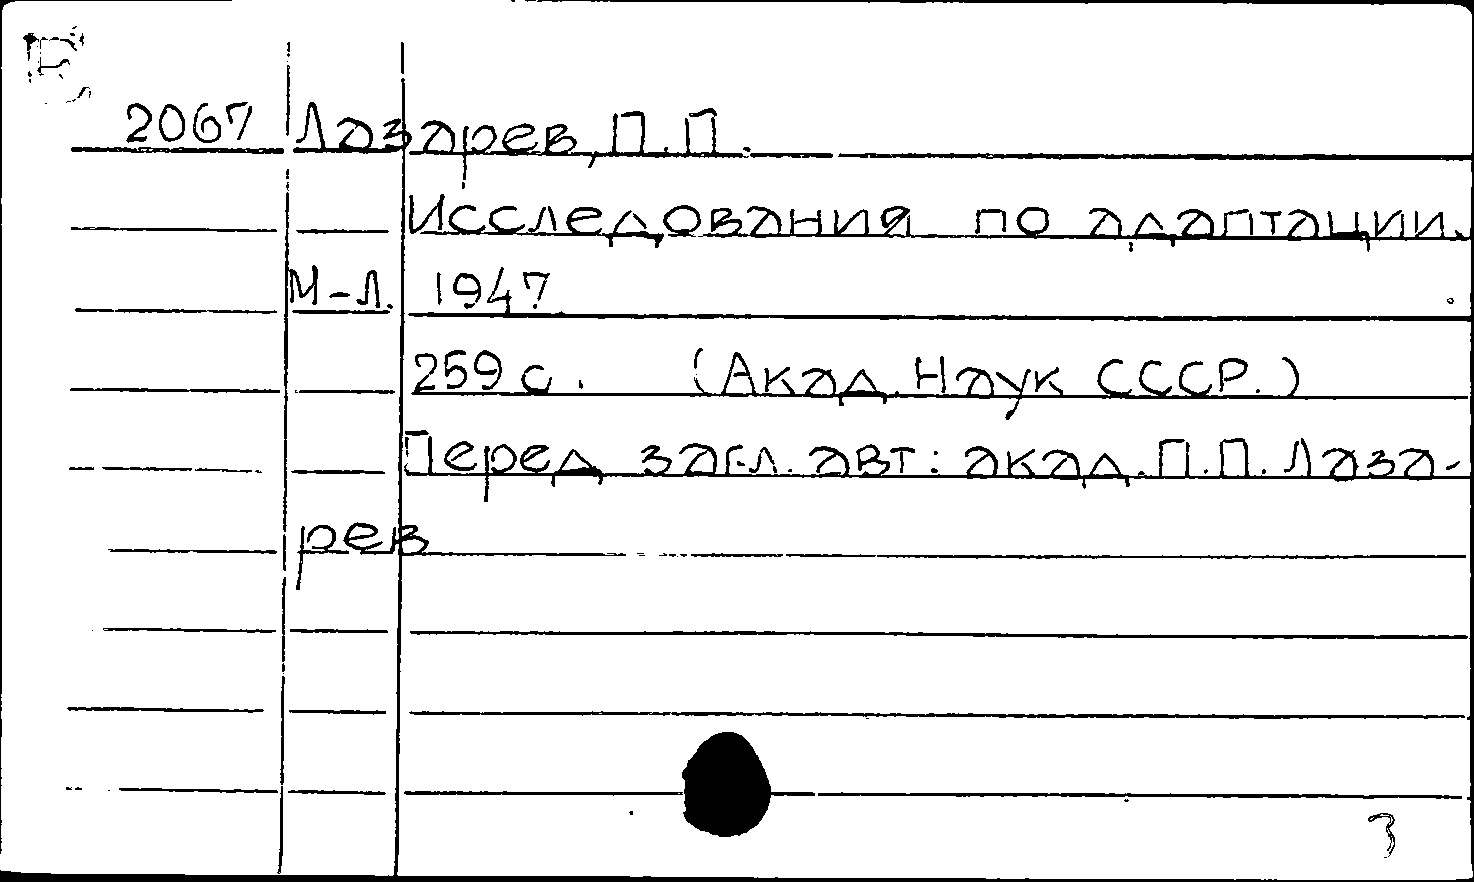 Е
2067 Лазарев, П.П.
Исследования по адаптации.
М-Л. 1947
259 с. (Акад. Наук СССР.)
Перед загл. авт: акад. П.П. Лаза-
рев
3